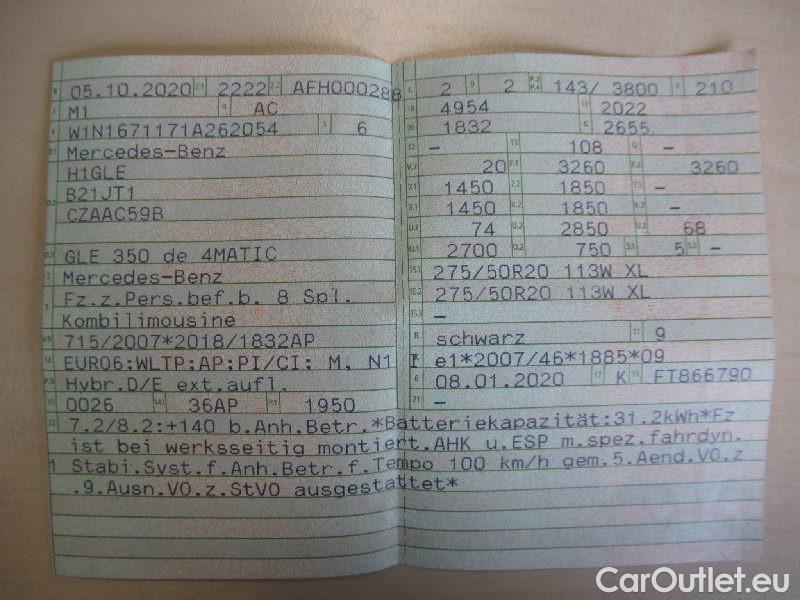 B 05.10.2020 2.1 2222 2.2 AFH000288
J M1 4 AC
E W1N1671171A262054 3 6
D.1 Mercedes-Benz
H1GLE
D.2 B21JT1
CZAAC59B
D.3 GLE 350 de 4MATIC
2 Mercedes-Benz
5 Fz.z.Pers.bef.b. 8 Spl.
Kombilimousine
V.9 715/2007*2018/1832AP
14 EURO6:WLTP:AP:PI/CI: M, N1 I
P.3 Hybr.D/E ext.aufl.
10 0026 14.1 36AP P.1 1950
L 2 9 2 P.2 P.4 143/ 3800 T 210
18 4954 19 2022
20 1832 G 2655
12 – 13 108 Q –
V.7 20 F.1 3260 F.2 3260
7.1 1450 7.2 1850 7.3 –
8.1 1450 8.2 1850 8.3 –
U.1 74 U.2 2850 U.3 68
O.1 2700 O.2 750 S.1 5 S.2 –
15.1 275/50R20 113W XL
15.2 275/50R20 113W XL
15.3 –
R schwarz 11 9
K e1*2007/46*1885*09
6 08.01.2020 17 K 16 FT866790
21 –
22 7.2/8.2:+140 b.Anh.Betr.*Batteriekapazität:31.2kWh*Fz
ist bei werksseitig montiert.AHK u.ESP m.spez.fahrdyn.
Stabi.Syst.f.Anh.Betr.f.Tempo 100 km/h gem.5.Aend.VO.z
.9.Ausn.VO.z.StVO ausgestattet*
CarOutlet.eu